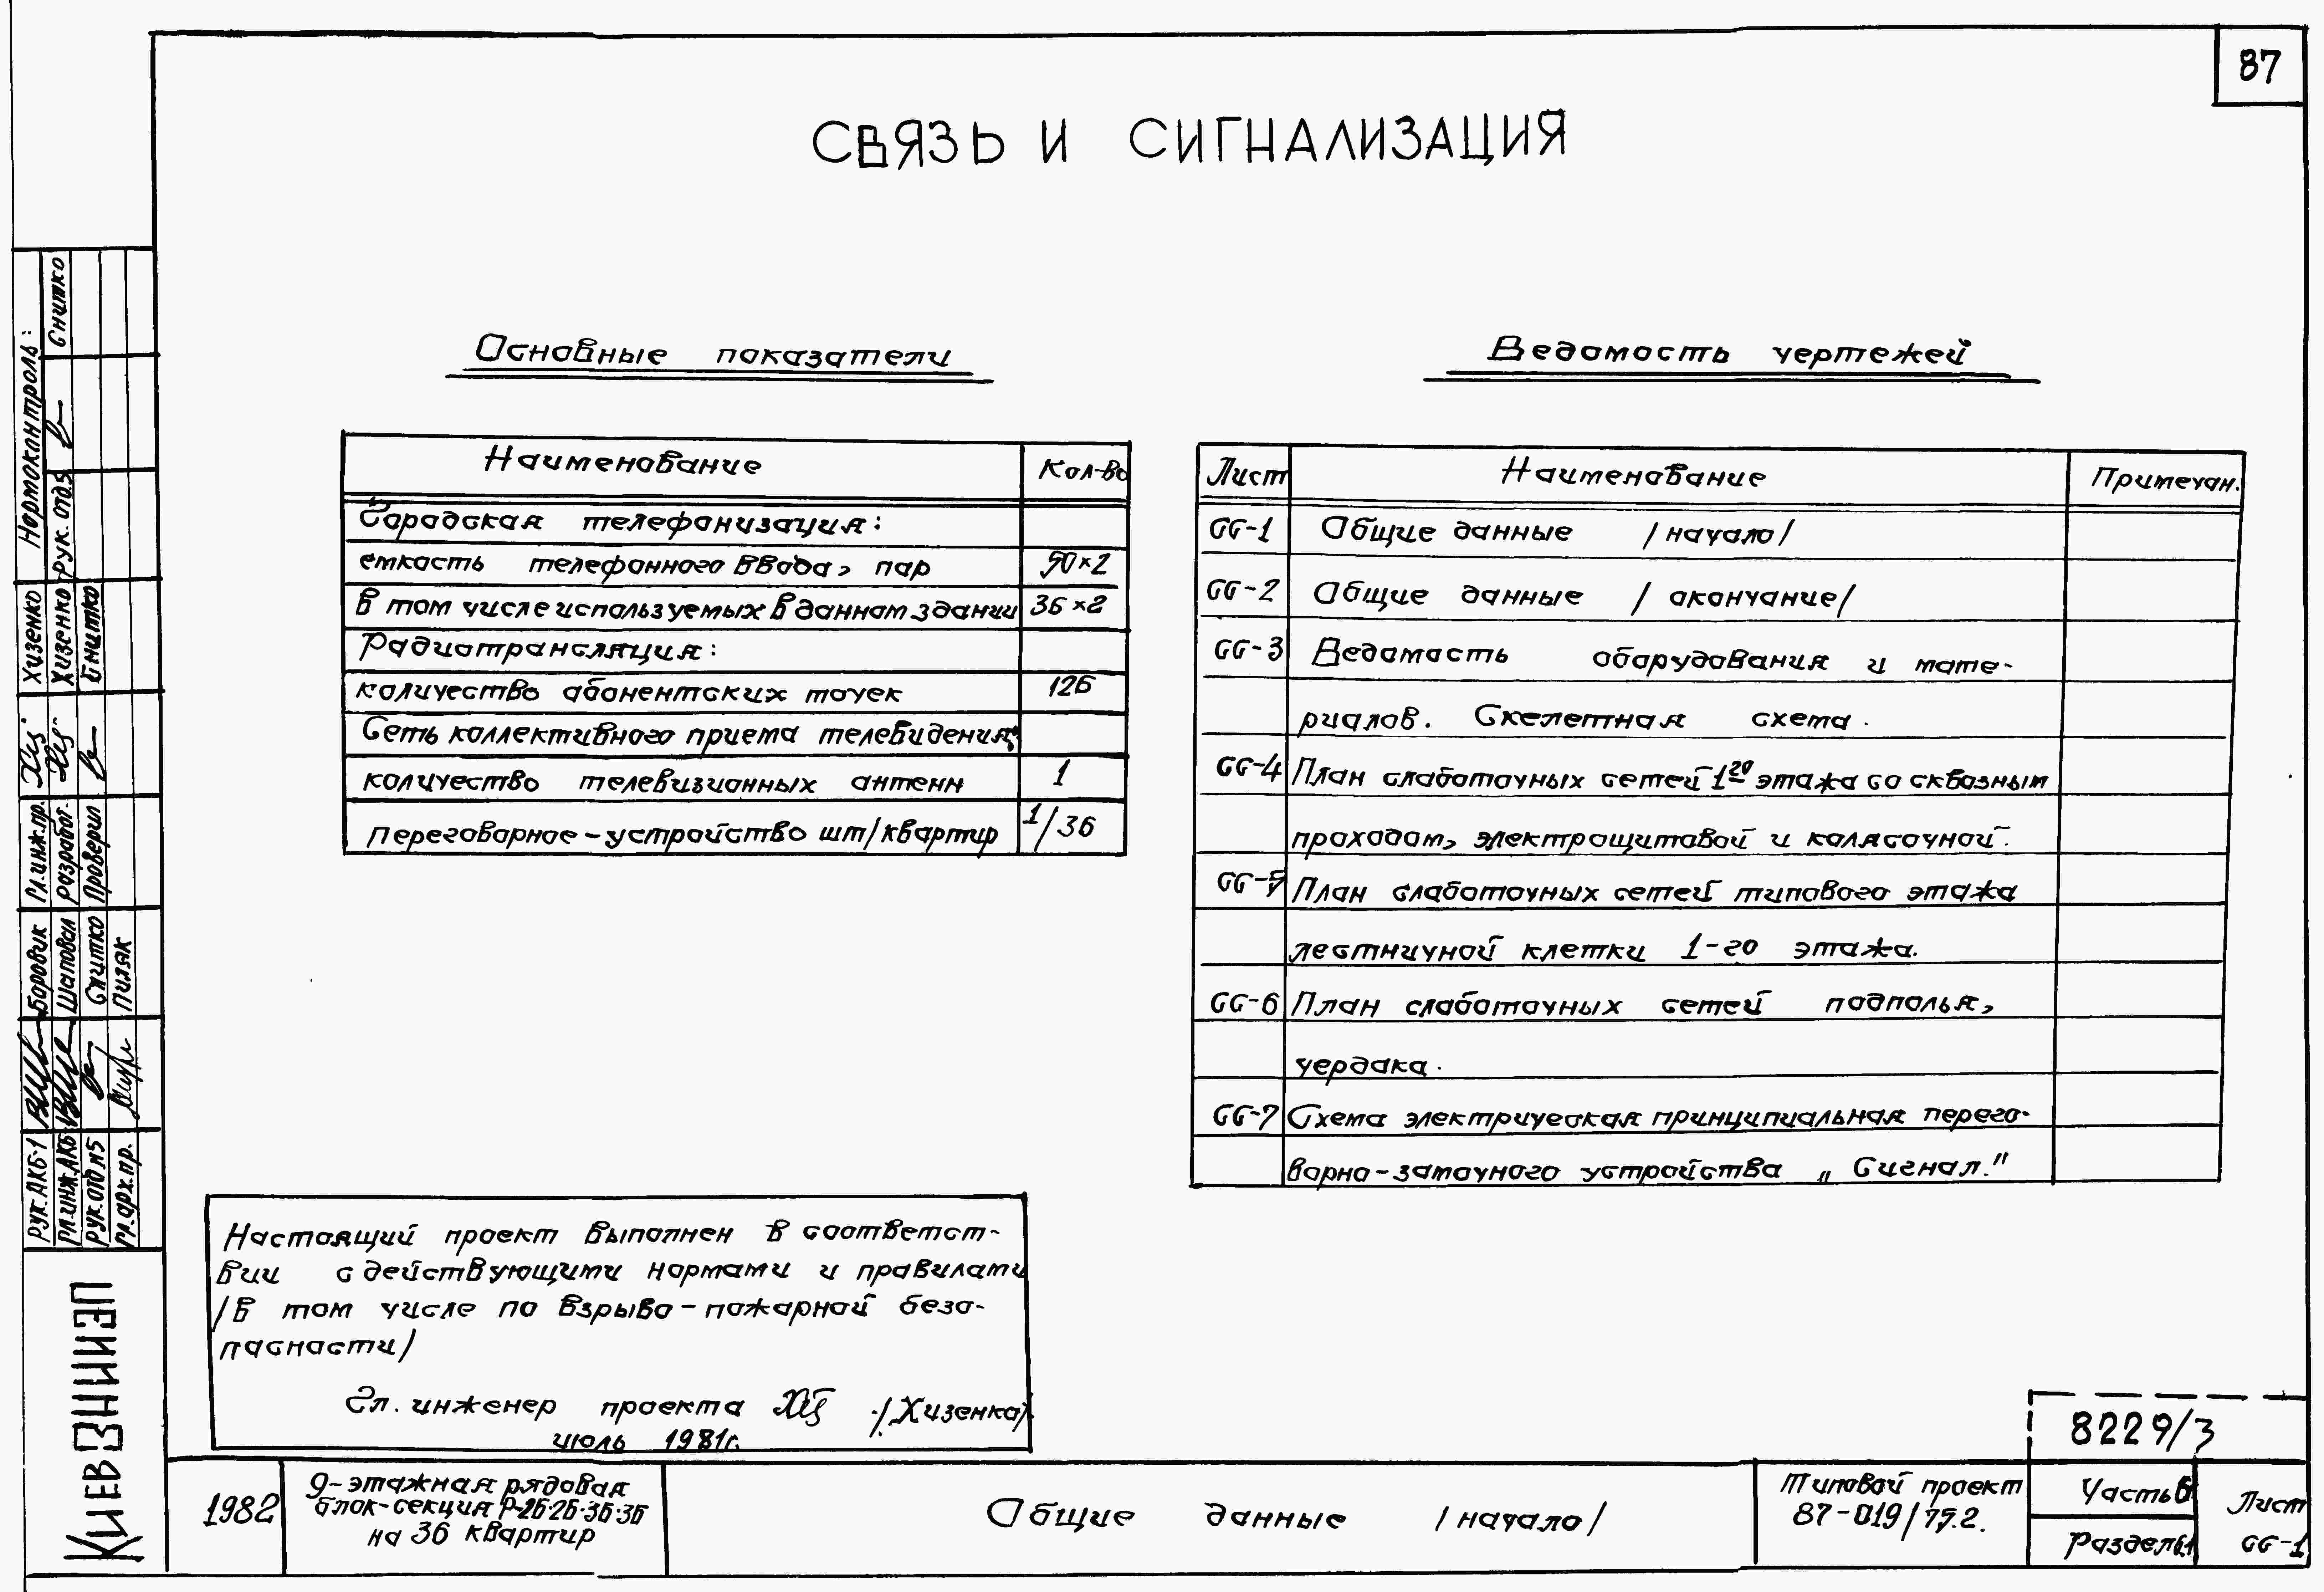 87
СВЯЗЬ И СИГНАЛИЗАЦИЯ
Основные показатели
Наименование Кол-во
Городская телефонизация:
емкость телефонного ввода, пар 50×2
в том числе используемых в данном здании 36×2
Радиотрансляция:
количество абонентских точек 126
Сеть коллективного приема телевидения:
количество телевизионных антенн 1
переговорное-устройство шт/квартир 1/36
Ведомость чертежей
Лист Наименование Примечан.
СС-1 Общие данные /начало/
СС-2 Общие данные /окончание/
СС-3 Ведомость оборудования и мате-
риалов. Скелетная схема.
СС-4 План слаботочных сетей 1го этажа со сквозным
проходом, электрощитовой и колясочной.
СС-5 План слаботочных сетей типового этажа
лестничной клетки 1-го этажа.
СС-6 План слаботочных сетей подполья,
чердака.
СС-7 Схема электрическая принципиальная перего-
ворно-замочного устройства „Сигнал."
Настоящий проект выполнен в соответст-
вии с действующими нормами и правилами
/в том числе по взрыво-пожарной безо-
пасности/
Гл. инженер проекта /Хизенко/
июль 1981г.
Нормоконтроль:
Рук. отд.5 Снитко
Гл.инж.пр. Хизенко
Разработ. Хизенко
Проверил Снитко
Рук. АКБ-1 Боровик
Гл.инж.АКБ-1 Шаповал
Рук.отд №5 Снитко
Гл.арх.пр. Пиляк
КиевЗНИИЭП
1982
9-этажная рядовая
блок-секция Р-2Б·2Б·3Б·3Б
на 36 квартир
Общие данные /начало/
Типовой проект
87-019/75.2.
8229/3
Часть 6
Раздел 6.1
Лист
СС-1